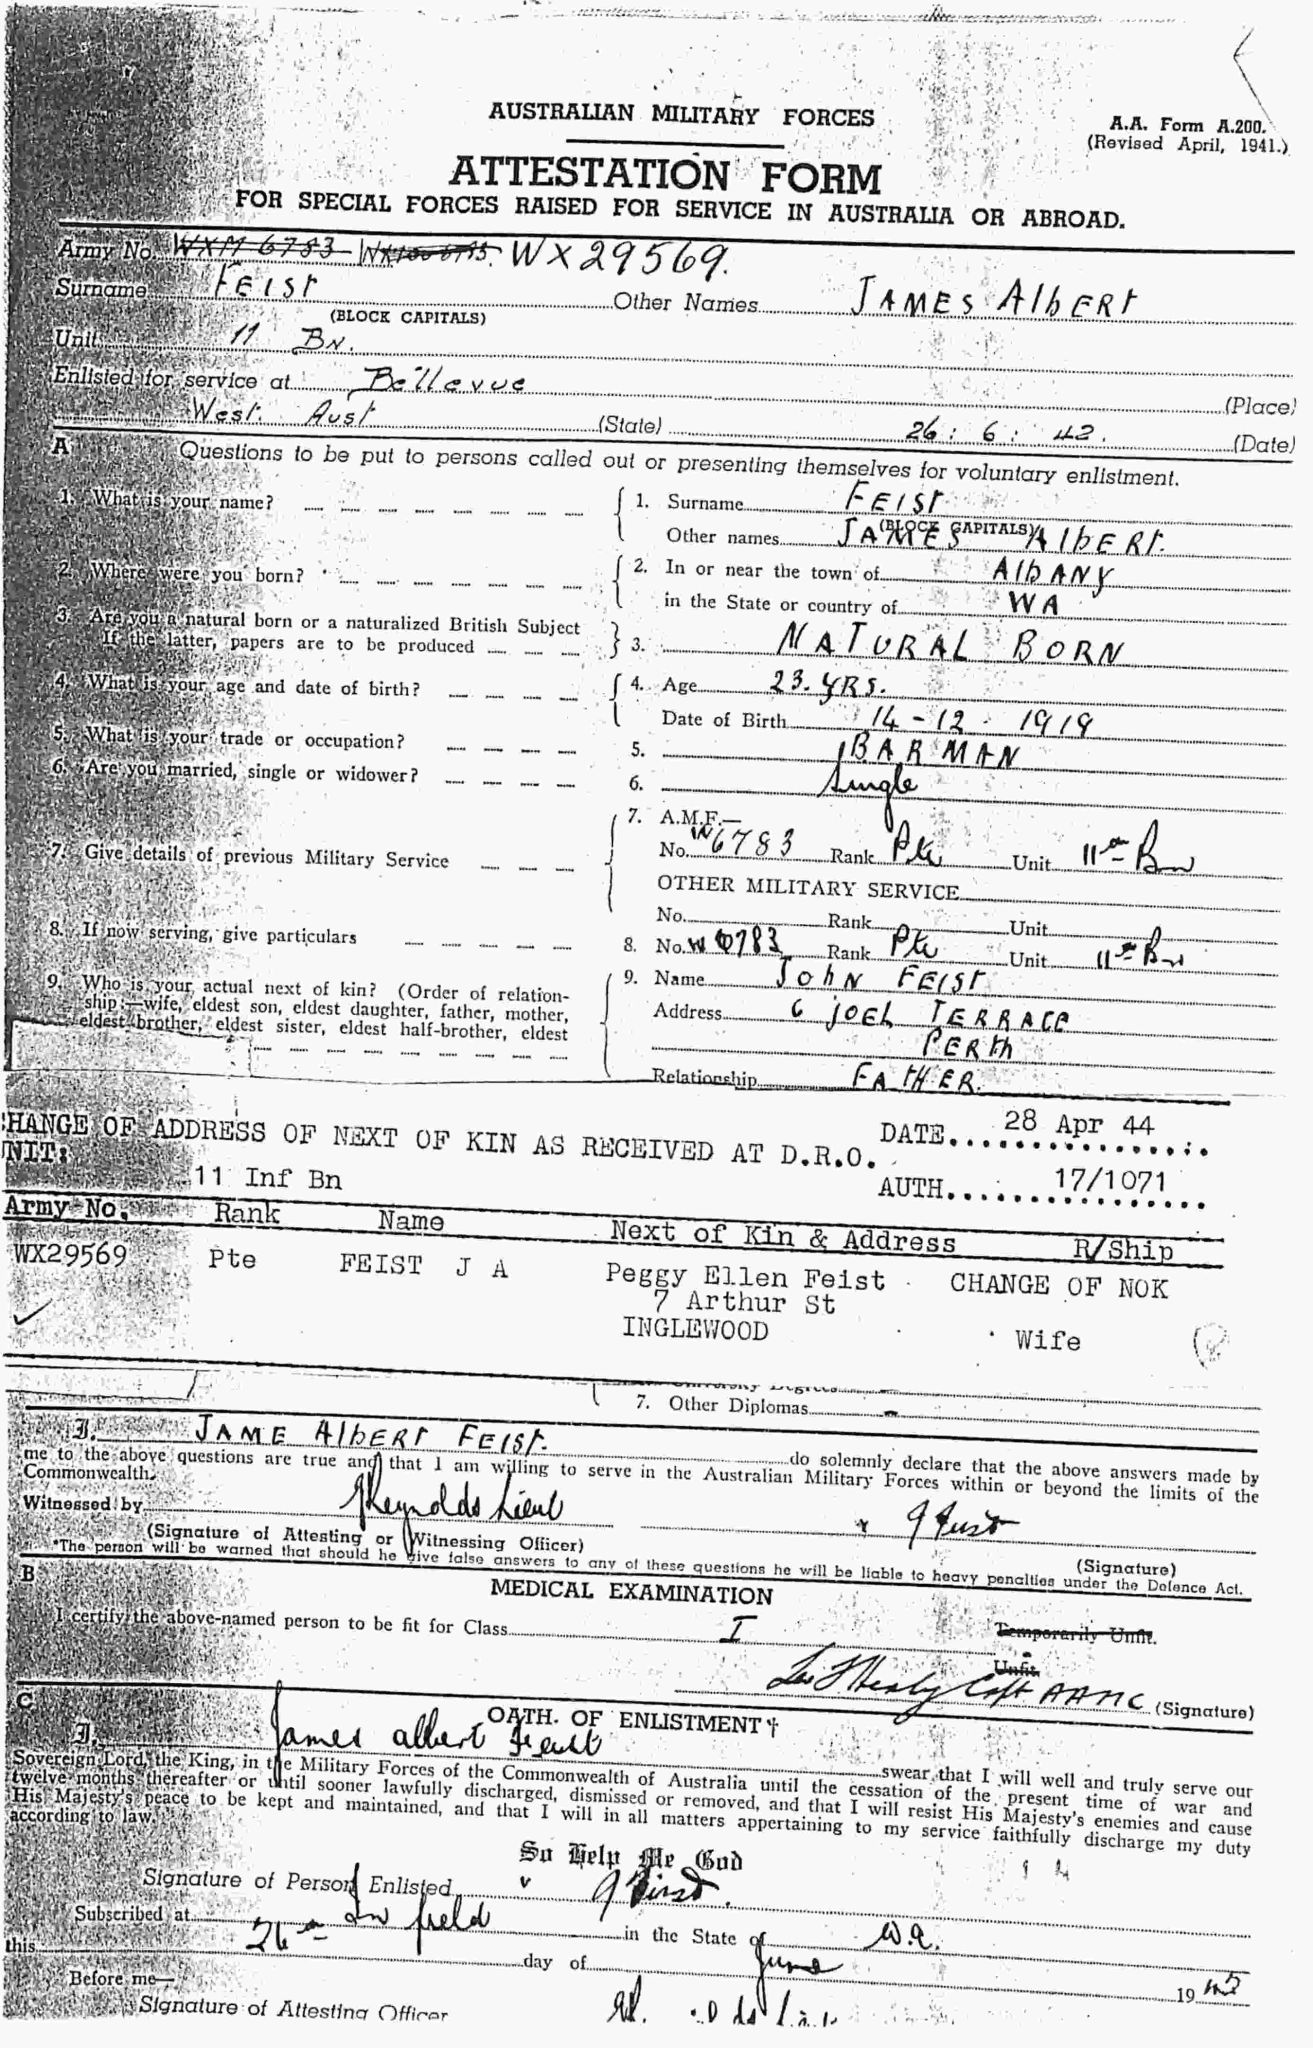 AUSTRALIAN MILITARY FORCES
A.A. Form A.200.
(Revised April, 1941.)
ATTESTATION FORM
FOR SPECIAL FORCES RAISED FOR SERVICE IN AUSTRALIA OR ABROAD.
Army No. WXM 6783 WX29569.
Surname FEIST Other Names JAMES AlbERT
(BLOCK CAPITALS)
Unit 11 BN.
Enlisted for service at Bellevue (Place)
West. Aust (State) 26 : 6 : 42. (Date)
A Questions to be put to persons called out or presenting themselves for voluntary enlistment.
1. What is your name? 1. Surname FEIST
(BLOCK CAPITALS)
Other names JAMES AlbERT.
2. Where were you born? 2. In or near the town of AlbANY
in the State or country of WA
3. Are you a natural born or a naturalized British Subject
If the latter, papers are to be produced 3. NATURAL BORN
4. What is your age and date of birth? 4. Age 23. YRS.
Date of Birth 14 - 12 - 1919
5. What is your trade or occupation? 5. BARMAN
6. Are you married, single or widower? 6. Single
7. Give details of previous Military Service 7. A.M.F.—
No. W6783 Rank Pte Unit 11th Bn
OTHER MILITARY SERVICE
No. Rank Unit
8. If now serving, give particulars 8. No. W6783 Rank Pte Unit 11th Bn
9. Who is your actual next of kin? (Order of relation-
ship:—wife, eldest son, eldest daughter, father, mother,
eldest brother, eldest sister, eldest half-brother, eldest
9. Name JOhN FEIST
Address 6 JOEL TERRACE
PERTh
Relationship FATHER.
CHANGE OF ADDRESS OF NEXT OF KIN AS RECEIVED AT D.R.O. DATE 28 Apr 44
UNIT: 11 Inf Bn AUTH 17/1071
Army No. Rank Name Next of Kin & Address R/Ship
WX29569 Pte FEIST J A Peggy Ellen Feist CHANGE OF NOK
7 Arthur St
INGLEWOOD Wife
University Degrees
7. Other Diplomas -
I, JAME AlbERT FEIST. do solemnly declare that the above answers made by
me to the above questions are true and that I am willing to serve in the Australian Military Forces within or beyond the limits of the
Commonwealth.
Witnessed by Reynolds Lieut J Feist
(Signature of Attesting or Witnessing Officer) (Signature)
*The person will be warned that should he give false answers to any of these questions he will be liable to heavy penalties under the Defence Act.
B MEDICAL EXAMINATION
I certify the above-named person to be fit for Class I Temporarily Unfit.
Unfit.
Healy Capt AAMC (Signature)
C OATH OF ENLISTMENT †
I, James Albert Feist swear that I will well and truly serve our
Sovereign Lord, the King, in the Military Forces of the Commonwealth of Australia until the cessation of the present time of war and
twelve months thereafter or until sooner lawfully discharged, dismissed or removed, and that I will resist His Majesty's enemies and cause
His Majesty's peace to be kept and maintained, and that I will in all matters appertaining to my service faithfully discharge my duty
according to law.
So Help Me God
Signature of Person Enlisted J Feist.
Subscribed at In field in the State of W.A.
this 26th day of June 19
Before me—
Signature of Attesting Officer